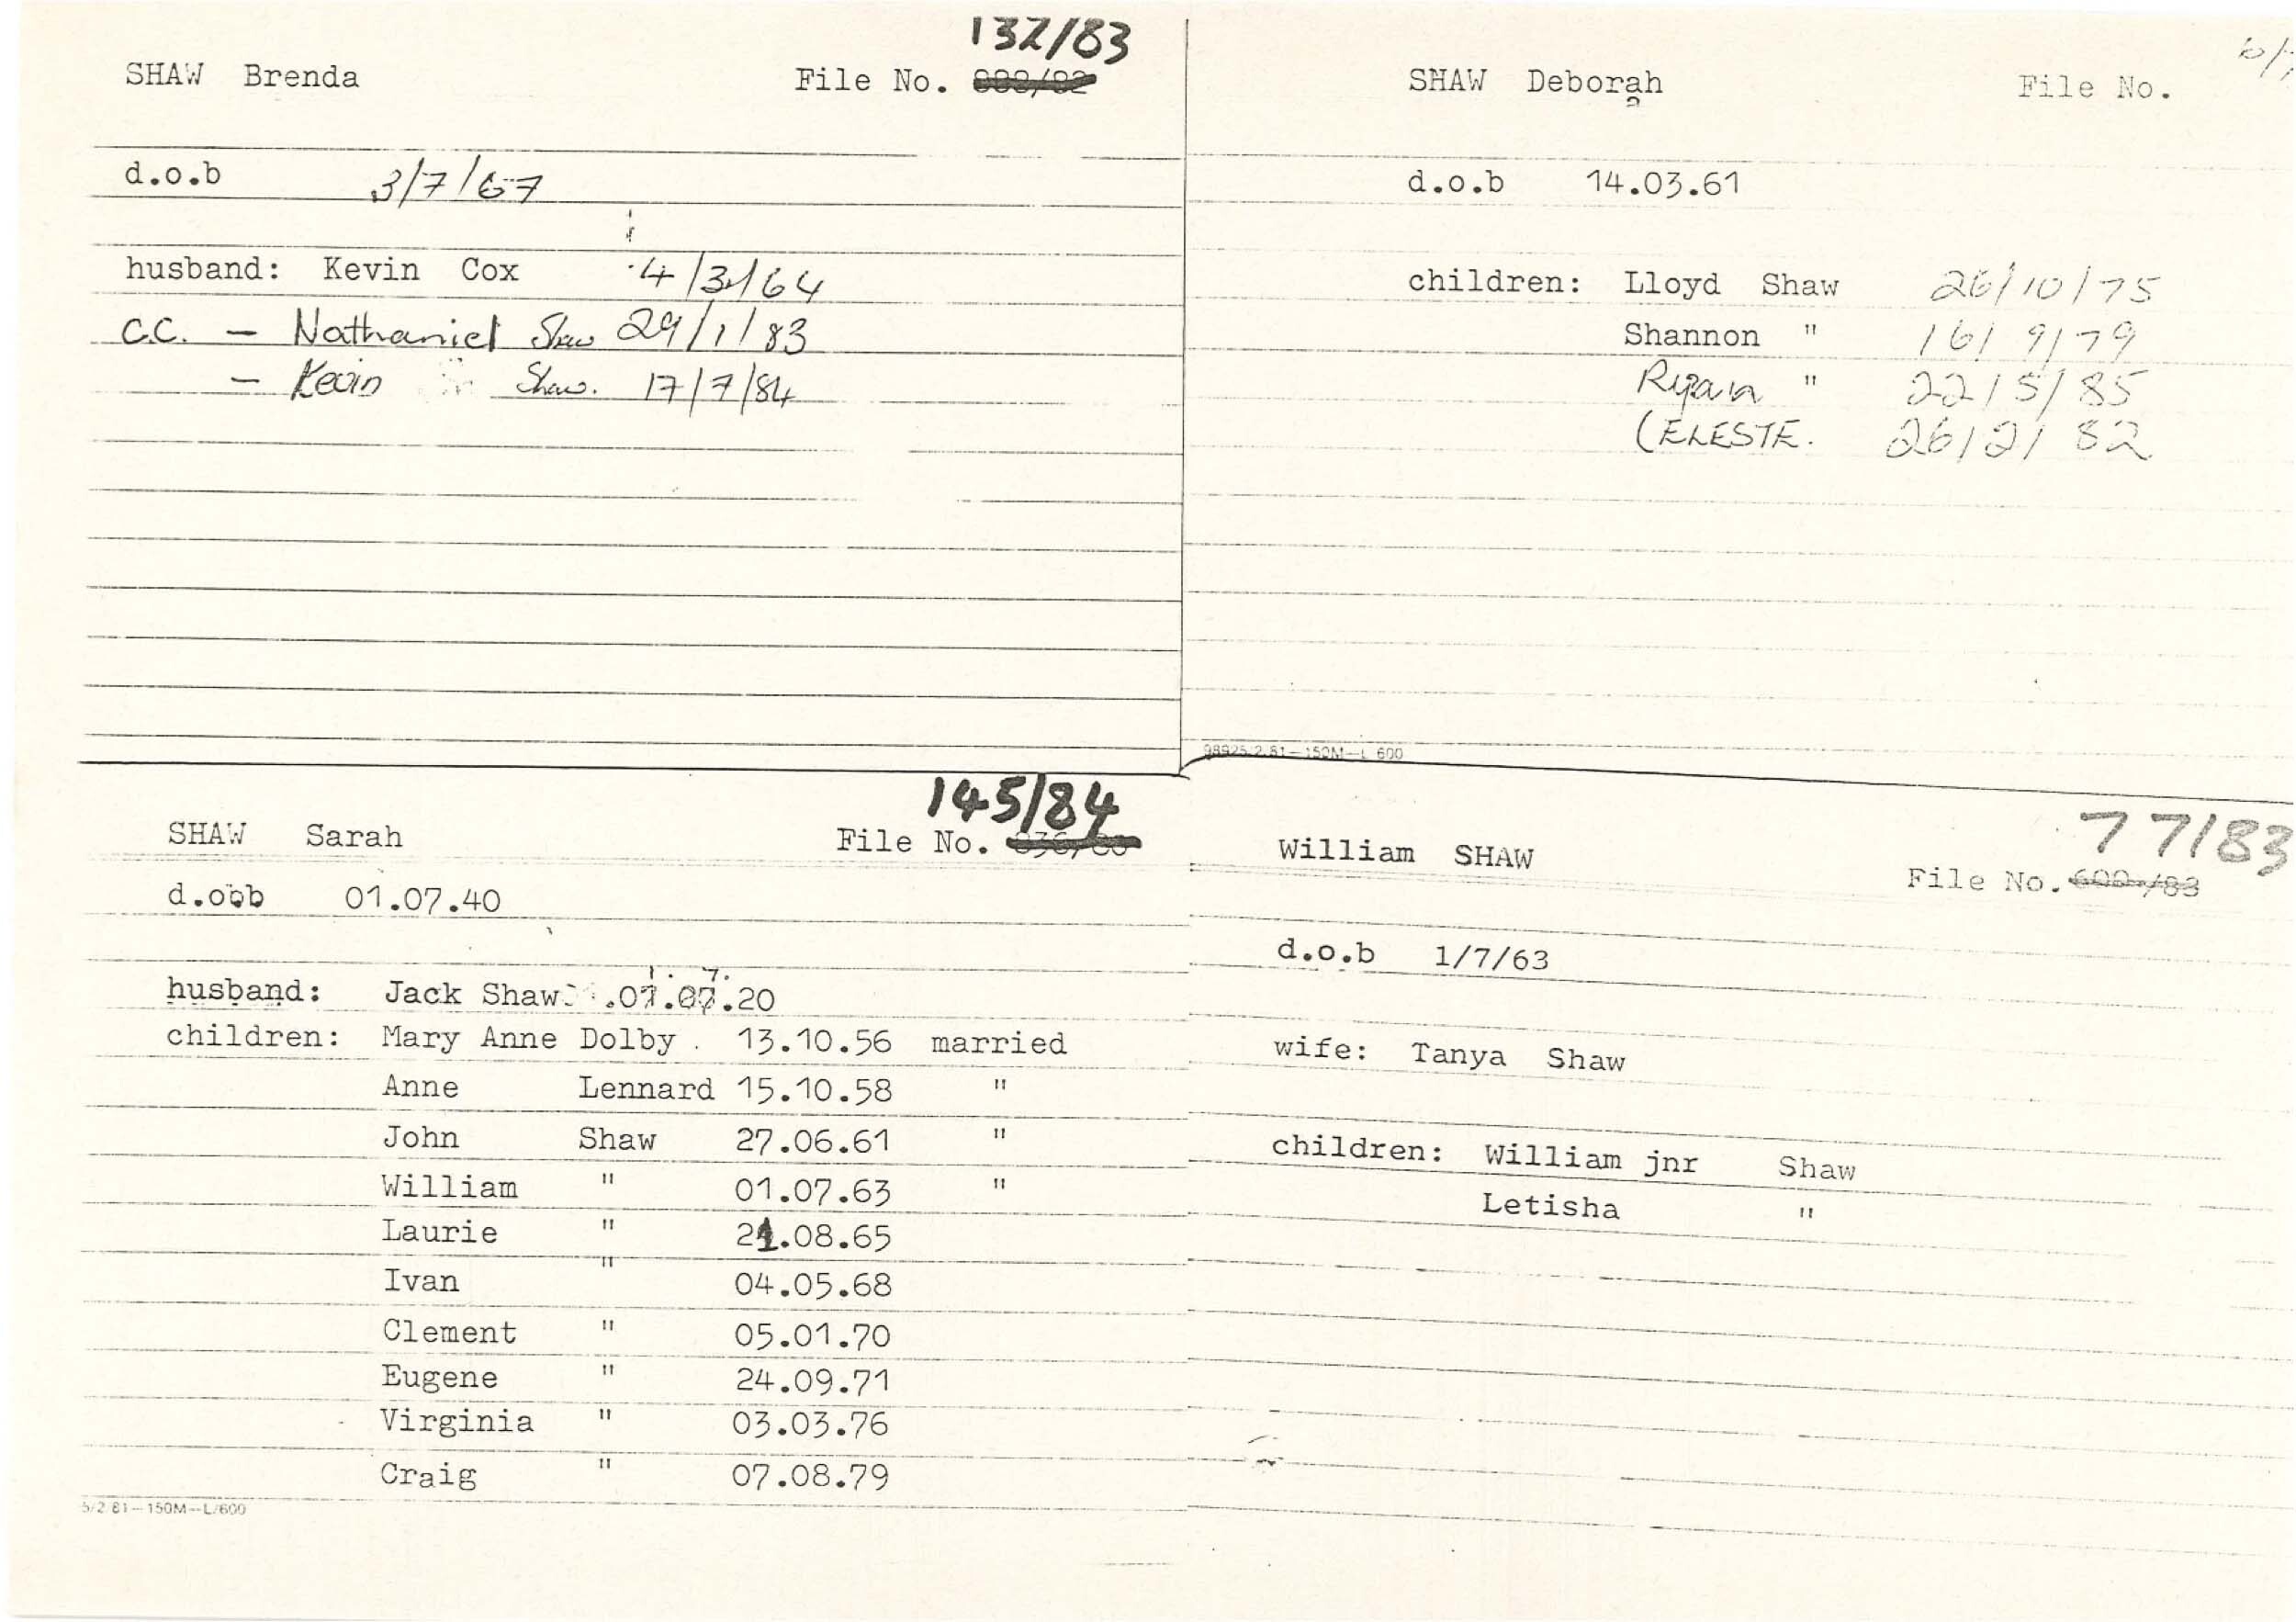 132/83
SHAW Brenda File No.
d.o.b 3/7/67
husband: Kevin Cox 4/3/64
C.C. – Nathaniel Shaw 29/1/83
– Kevin Shaw. 17/7/84
SHAW Deborah File No.
d.o.b 14.03.61
children: Lloyd Shaw 26/10/75
Shannon " 16/9/79
Ryan " 22/5/85
CELESTE. 26/2/82
98925/2.81—150M—L 600
145/84
SHAW Sarah File No.
d.oob 01.07.40
husband: Jack Shaw .07.20
children: Mary Anne Dolby . 13.10.56 married
Anne Lennard 15.10.58 "
John Shaw 27.06.61 "
William " 01.07.63 "
Laurie " 21.08.65
Ivan " 04.05.68
Clement " 05.01.70
Eugene " 24.09.71
Virginia " 03.03.76
Craig " 07.08.79
5/2 81—150M—L/600
77/83
William SHAW File No. 600./83
d.o.b 1/7/63
wife: Tanya Shaw
children: William jnr Shaw
Letisha "